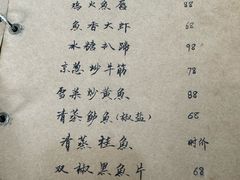 鸡火鱼唇 88
鱼香大虾 68
冰糖扒蹄 98
京葱炒牛筋 78
雪菜炒黄鱼 88
清蒸鲈鱼(椒盐) 68
清蒸桂鱼 时价
双椒黑鱼片 68